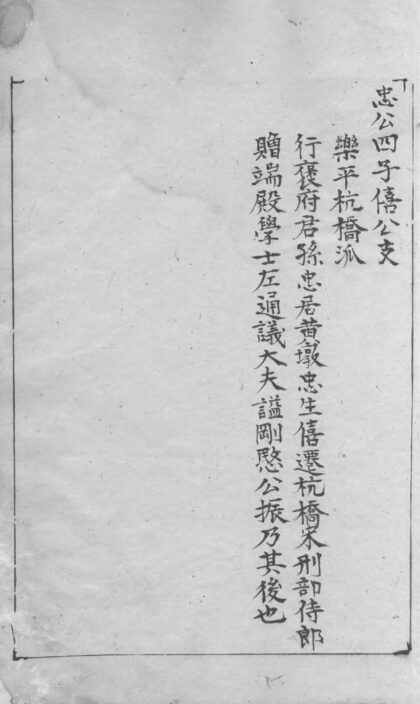 忠公四子僖公支
樂平杭橋派
行褒府君孫忠居黄墩忠生僖遷杭橋宋刑部侍郎
贈端殿學士左通議大夫謚剛愍公振乃其後也